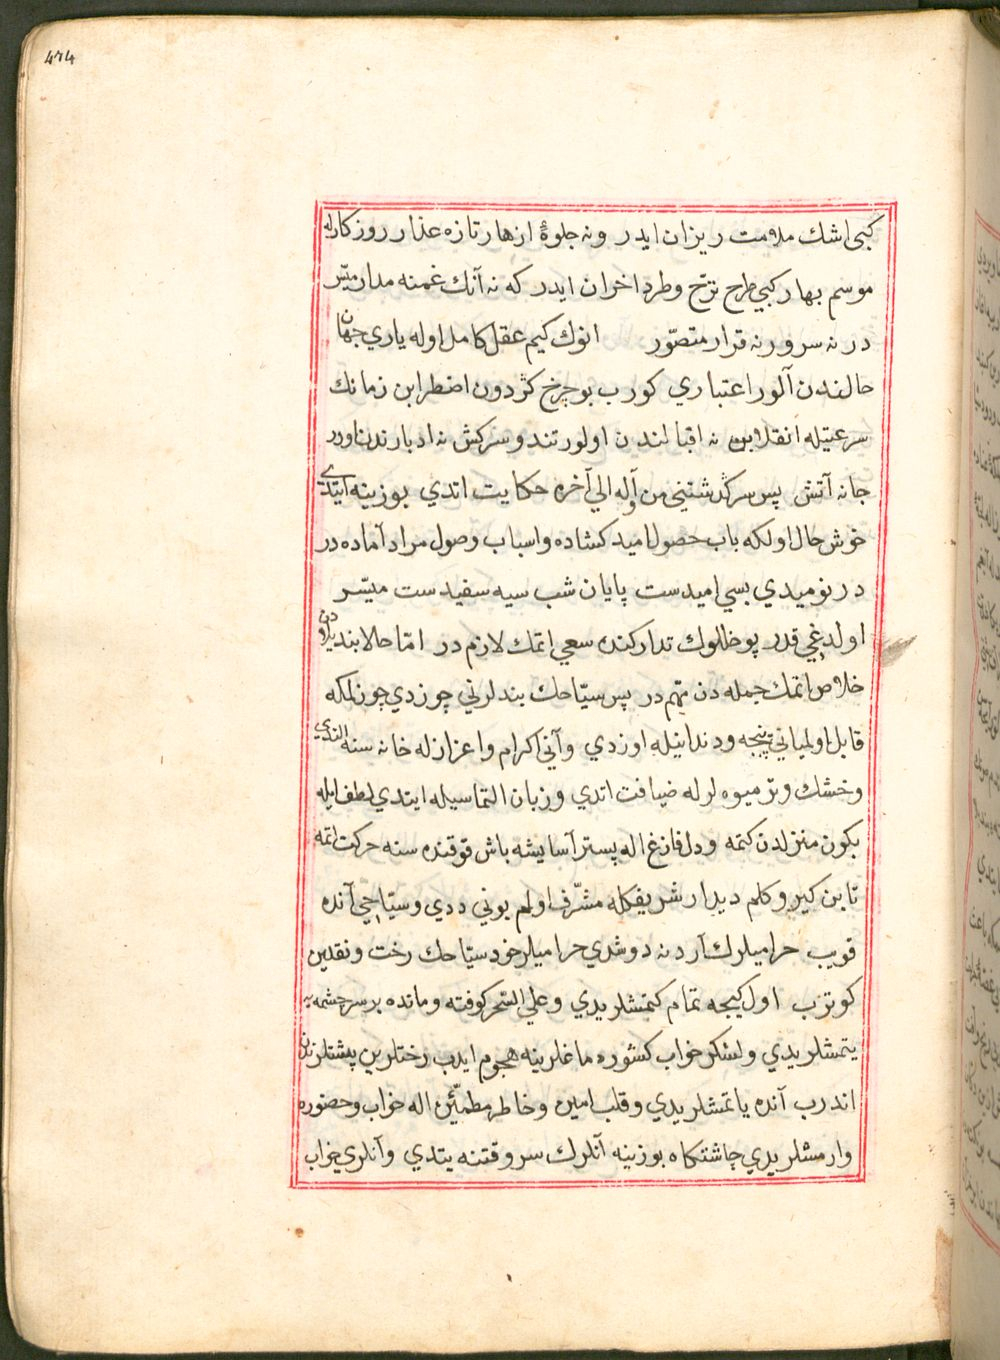 474
كبي اشك ملامت ريزان ايدر ونه جلوهٔ ازهار تازه عذار روزكار له
موسم بهار كبي طرح ترّح وطرد اخران ايدر كه نه آنك غمنه مدار ميسّر
در نه سرورنه قرار متصوّر انوك كيم عقل كامل اوله ياري جهان
حالندن آلور اعتباري كورب بو چرخ كژدون اضطرابن زمانك
سرعتيله انقلابن نه اقبالندن اولور تند وسركش نه ادبارندن اورر
جانه آتش پس سركذشتني من آوله الي آخره حكايت اتدي بوزينه ايتدي
خوش حال اولكه باب حصول اميد كشاده واسباب وصول مراد آماده در
در نوميدي بسي اميدست پايان شب سيه سفيدست ميسّر
اولدغي قدر بو خللوك تداركنده سعي اتمك لازم در امّا حالا بنديكدن
خلاص اتمك جمله دن مهّم در پس سيّاحك بندلرني چوزدي چوزلمكه
قابل اولمياني پنجه ودندانيله اوزدي وآني اكرام واعزازله خانه سنه التدي
وخشك وتر ميوه لرله ضيافت اتدي وزبان التماسيله ايتدي لطف ايله
بكون منزلدن كتمه ودل فارغ اله بستر آسايشه باش قو قنده سنه حركت اتمه
تا بن كيرو كلم ديدار شريفكله مشرّف اولم بوني ددي وسيّاحي آنده
قويب حراميلرك آردنه دوشدي حراميلر خود سيّاحك رخت ونقدين
كوترب اول كيجه تمام كتمشلريدي وعلي السّحر كوفته ومانده بر سر چشمه يه
يتمشلريدي ولشكر خواب كشوره ماغلرينه هجوم ايدب رختلرين پشتلرندن
اندرب آنده ياتمشلريدي وقلب امين وخاطر مطمئّن اله خواب وحضوره
وارمشلريدي چاشتكاه بوزينه آنلرك سروقتنه يتدي وآنلري خواب